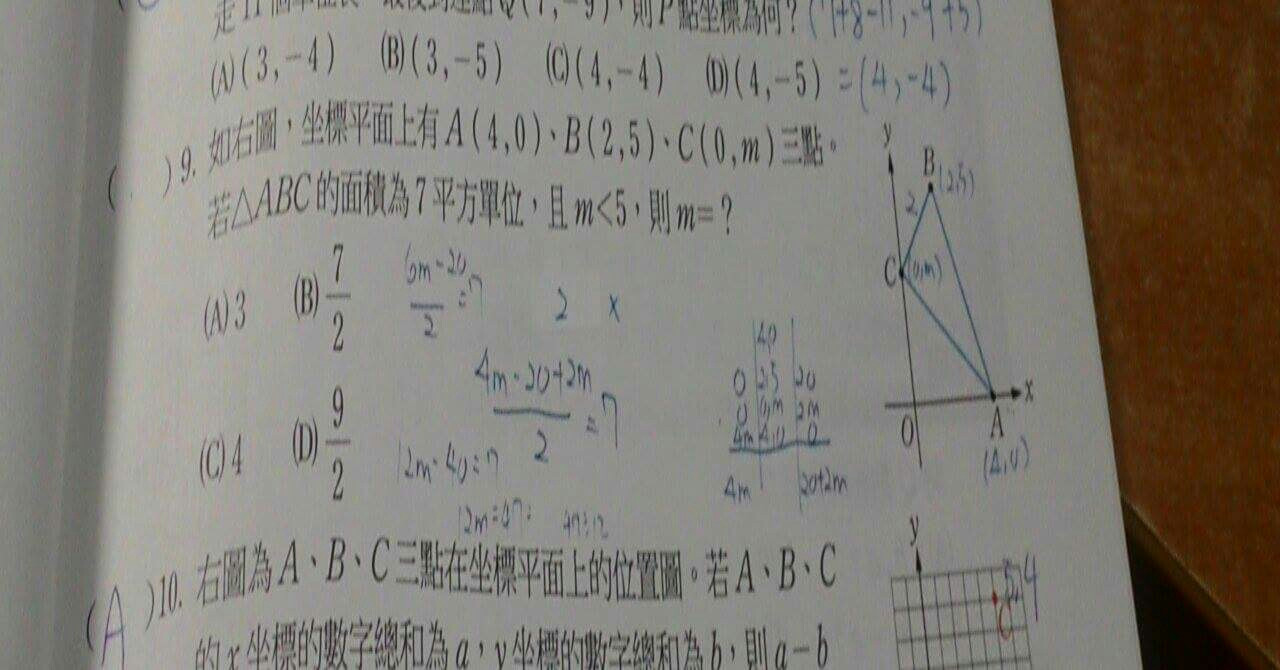 走11個單位長,最後到達點Q(7,-9),則P點坐標為何?(7+8-11,-9+5)
(A)(3,-4) (B)(3,-5) (C)(4,-4) (D)(4,-5) =(4,-4)
( )9. 如右圖,坐標平面上有A(4,0)、B(2,5)、C(0,m)三點。
若△ABC的面積為7平方單位,且m<5,則m=?
(A)3 (B)7/2
(C)4 (D)9/2
6m-20/2=7
2 x
4m-20+2m/2=7
12m-40=7
12m=47=
47÷12
40
0 25 20
0 0m 2m
4m 4,0 0
4m 20+2m
y
B (2,5)
2
C (0,m)
O A x
(4,0)
(A)10. 右圖為A、B、C三點在坐標平面上的位置圖。若A、B、C
的x坐標的數字總和為a,y坐標的數字總和為b,則a-b
y
5,4
C